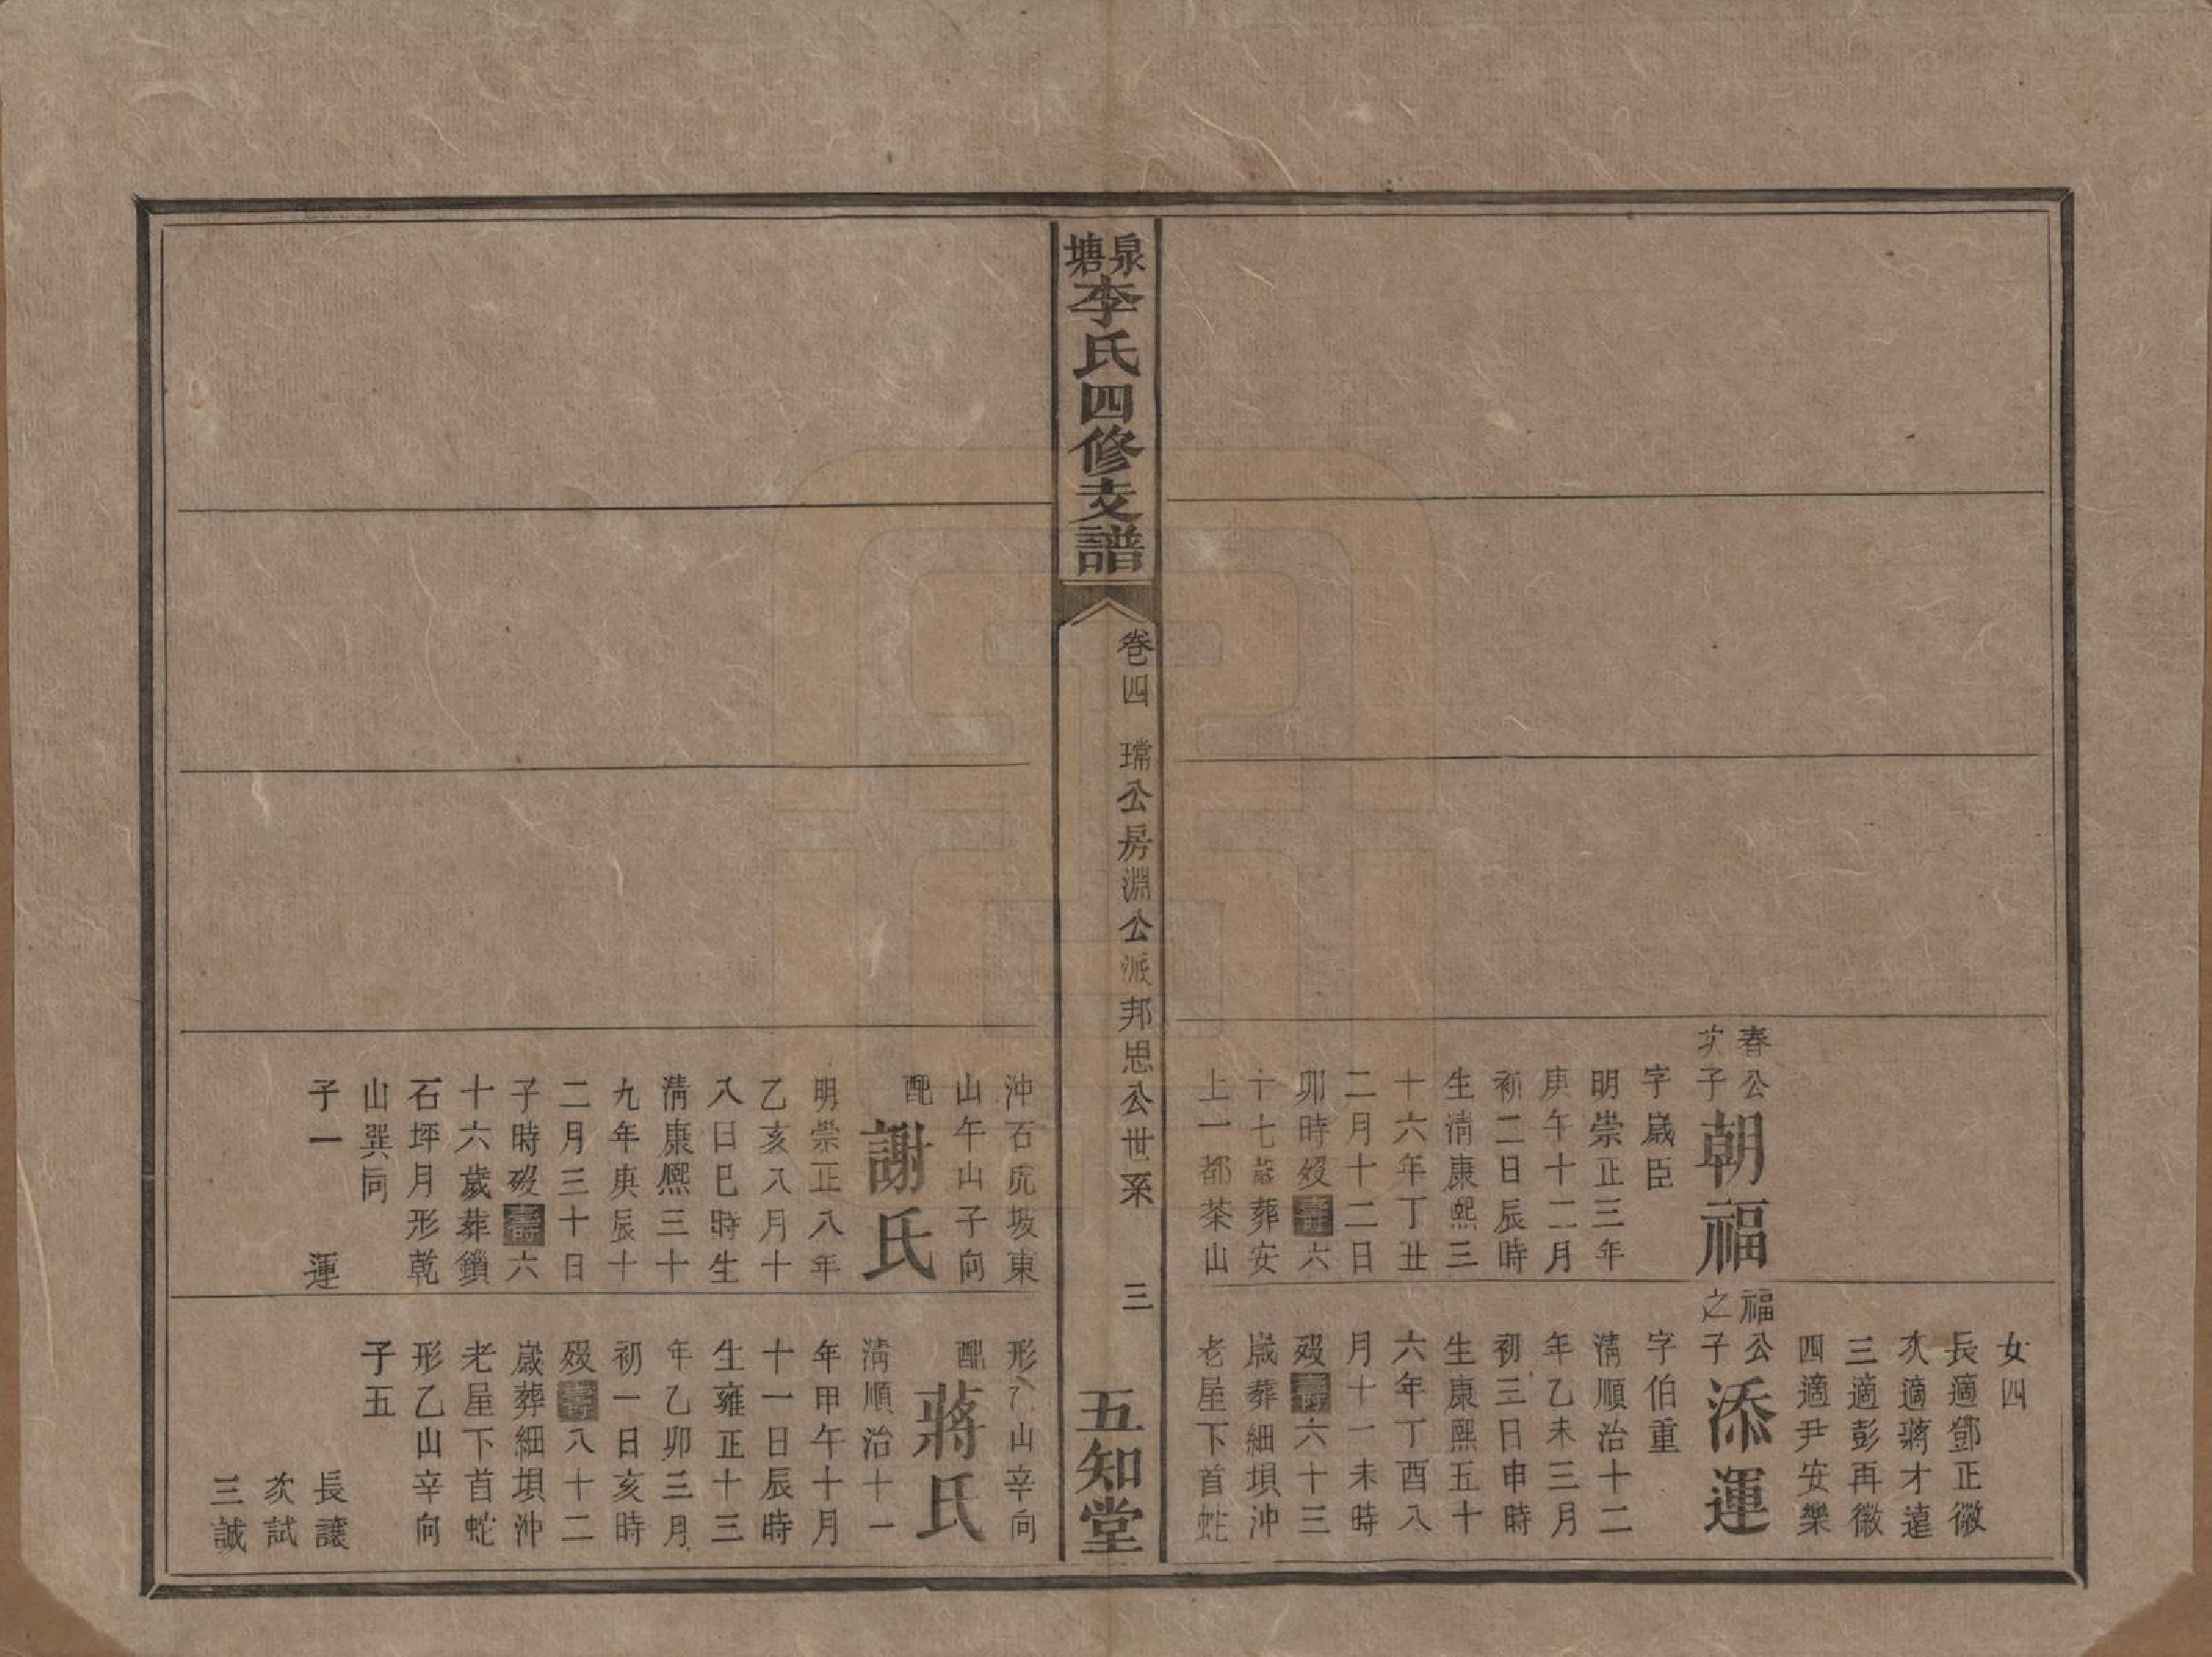 春公
次子
朝福
字歲臣
明崇正三年
庚午十二月
初二日辰時
生清康熙三
十六年丁丑
二月十二日
卯時歿壽六
十七歲葬安
上一都茶山
女四
長適鄧正徽
次適蔣才遠
三適彭再徽
四適尹安樂
福公
之子
添運
字伯重
清順治十二
年乙未三月
初三日申時
生康熙五十
六年丁酉八
月十一未時
歿壽六十三
歲葬細垻沖
老屋下首蛇
泉塘李氏四修支譜
卷四 瑺公房淵公派邦思公世系 三
五知堂
沖石虎坂東
山午山子向
配
謝氏
明崇正八年
乙亥八月十
八日巳時生
清康熙三十
九年庚辰十
二月三十日
子時歿壽六
十六歲葬鎖
石坪月形乾
山巽向
子一 運
形乙山辛向
配
蔣氏
清順治十一
年甲午十月
十一日辰時
生雍正十三
年乙卯三月
初一日亥時
歿壽八十二
歲葬細垻沖
老屋下首蛇
形乙山辛向
子五
長讓
次試
三誠